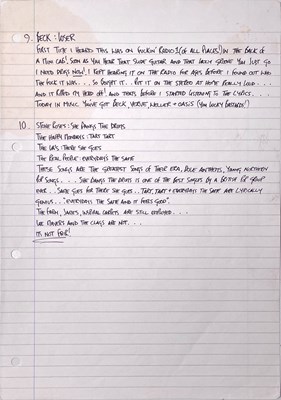 9. BECK : LOSER
FIRST TIME I HEARD THIS WAS ON FUCKIN' RADIO 1 (OF ALL PLACES!) IN THE BACK OF
A MINI CAB! SOON AS YOU HEAR THAT SLIDE GUITAR AND THAT LAZY GROOVE YOU JUST GO
I NEED DRUGS NOW! I KEPT HEARING IT ON THE RADIO FOR AGES BEFORE I FOUND OUT WHO
THE FUCK IT WAS... SO BOUGHT IT.. PUT IT ON THE STEREO AT HOME REALLY LOUD...
AND IT RIPPED MY HEAD OFF! AND THAT'S BEFORE I STARTED LISTENING TO THE LYRICS...
TODAY IN MUSIC YOU'VE GOT BECK, VERVE, WELLER + OASIS (YOU LUCKY BASTARDS!)
10. STONE ROSES : SHE BANGS THE DRUMS
THE HAPPY MONDAYS : TART TART
THE LA'S : THERE SHE GOES
THE REAL PEOPLE : EVERYDAYS THE SAME
THESE SONGS ARE THE GREATEST SONGS OF THEIR ERA, DOLE ANTHEMS, YOUNG NORTHERN
POP SONGS... SHE BANGS THE DRUMS IS ONE OF THE BEST SINGLES BY A BRITISH POP GROUP
EVER.. SAME GOES FOR THERE SHE GOES.. TART TART + EVERYDAYS THE SAME ARE LYRICALLY
GENIUS.. "EVERYDAYS THE SAME AND IT FEELS GOOD".
THE FARM, JAMES, INSPIRAL CARPETS ARE STILL EMPLOYED...
LEE MAVERS AND THE CLASS ARE NOT...
ITS NOT FAIR!